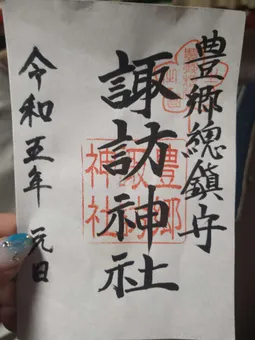 豊郷總鎮守
諏訪神社
令和五年 元日
豊郷
諏訪
神社